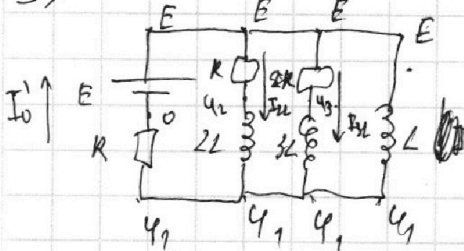 E E E E
I₀' E R φ₂ I₂L 2R φ₃ I₃L
R 0 2L 3L L
φ₁ φ₁ φ₁ φ₁